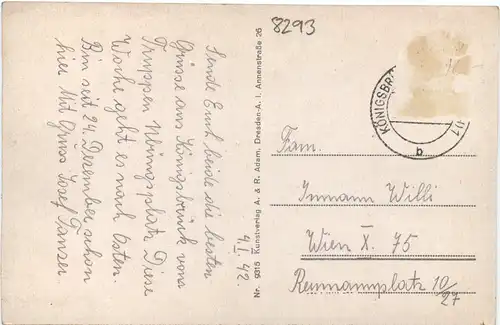 8293
4. I. 42.
Sende Euch beide die besten
Grüsse aus Königsbrück vom
Truppen Übungsplatz Diese
Woche geht es nach Osten.
Bin seit 24 Dezember schon
hier Mit Gruss Josef Tanzer
Nr. 9315 Kunstverlag A. & R. Adam, Dresden-A. I. Annenstraße 26
KÖNIGSBR
b
Fam.
Inmann Willi
Wien X. 75
Reumannplatz 10/27